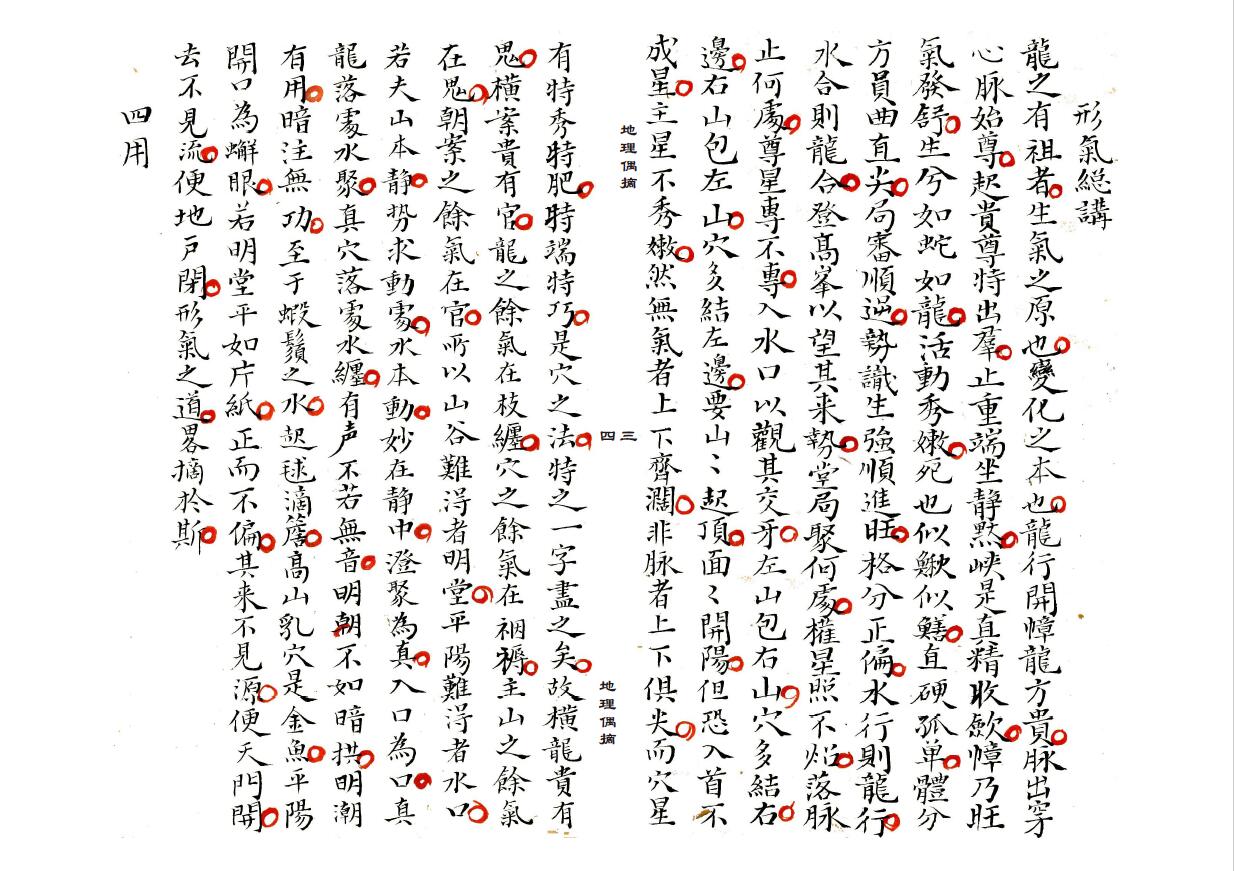 形氣緫講
龍之有祖者生氣之原也變化之本也龍行開幛龍方貴脉出穿
心脉始尊起貴尊特出羣止重端坐静黙峽是真精收歛幛乃旺
氣發舒生兮如蛇如龍活動秀嫩死也似鰍似鱔直硬孤单體分
方員曲直尖局審順逆勢識生強順進旺格分正偏水行則龍行
水合則龍合登髙峯以望其来勢堂局聚何處權星照不焰落脉
止何處尊星專不專入水口以觀其交牙左山包右山穴多結右
邊右山包左山穴多結左邊要山〻起頂面〻開陽但恐入首不
成星主星不秀嫩然無氣者上下齊濶非脉者上下俱尖而穴星
地理偶摘
四三
地理偶摘
有特秀特肥特端特巧是穴之法特之一字盡之矣故横龍貴有
鬼横案貴有官龍之餘氣在枝纏穴之餘氣在裀褥主山之餘氣
在鬼朝案之餘氣在官所以山谷難淂者明堂平陽難淂者水口
若夫山本静势求動處水本動妙在静中澄聚為真入口為口真
龍落處水聚真穴落處水纏有声不若無音明朝不如暗拱明潮
有用暗注無功至于蝦鬚之水起毬滴簷髙山乳穴是金魚平陽
開口為蠏眼若明堂平如片紙正而不偏其来不見源便天門開
去不見流便地戸閉形氣之道畧摘於斯
四用